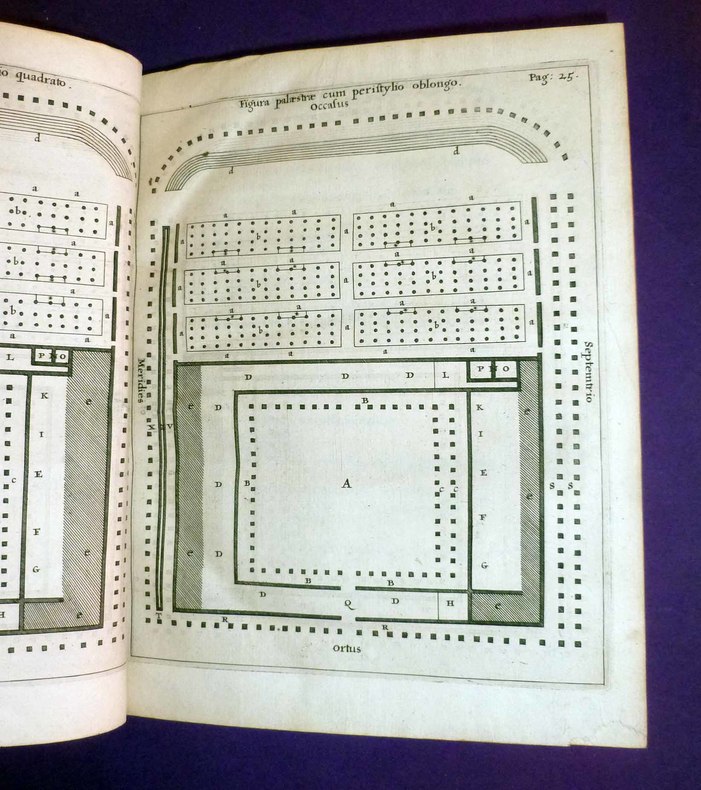 io quadrato.
d
a a
b a
a
b a
a
b a
L P N O
K
I e
E
c
F
e
G
H e
Figura palæstræ cum peristylio oblongo.
Pag: 25.
Occasus
d d
a a a a
a b a b a
a a a a
a b a b a
a a a a
a b a b a
a a a a
Meridies
Septemtrio
D D D L P N O
e D B K
X V I
E e
D B A C C S S
F
D G
e
B B
D Q D H e
T R R
Ortus